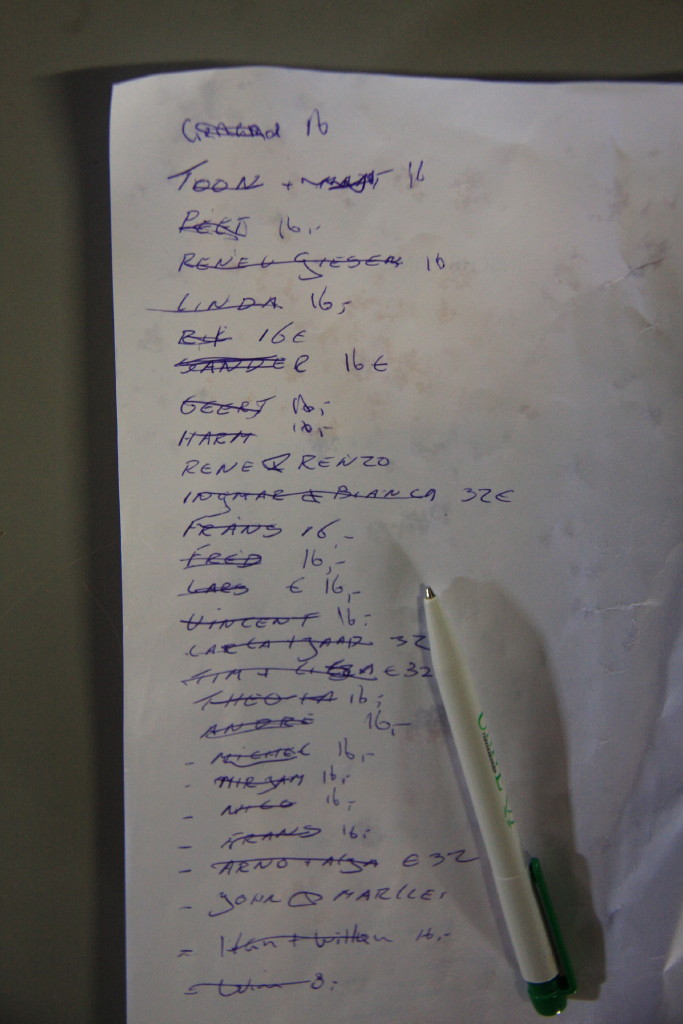 16
TOON + 16
PEET 16,-
RENE 16
LINDA 16,-
RIK 16€
SANDER 16€
GEERT 16,-
HARM 16,-
RENE & RENZO
INGMAR & BLANCA 32€
FRANS 16 -
FRED 16,-
LARS € 16,-
VINCENT 16:
CARLA 32
TIM + € 32
THEO 16;
ANDRE 16,-
- MICHEL 16,-
- MIRJAM 16,-
- NICO 16,-
- FRANS 16:
- ARNO + € 32
- JOHN &
= Han + Willem 16,-
= Wim 8: